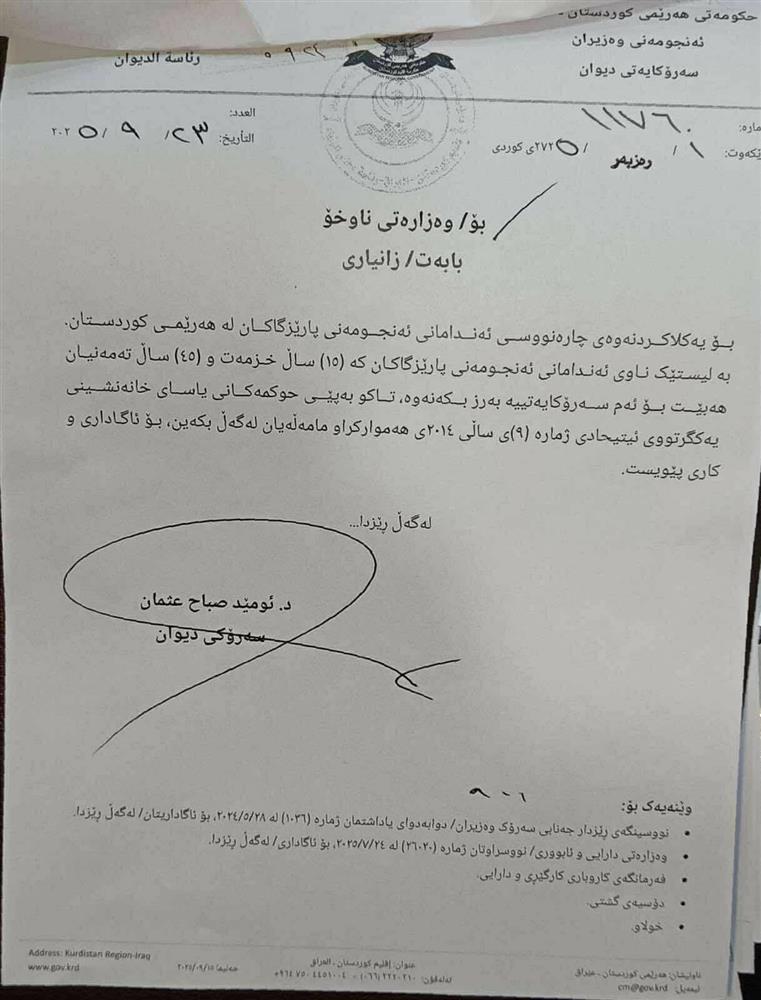 حکومەتی هەرێمی کوردستان -
ئەنجومەنی وەزیران
سەرۆکایەتی دیوان
رئاسة الديوان
٥ ٩ ٢٤
ژمارە: ١١٧٦٠
ڕێکەوت: ١ / ڕەزبەر / ٢٧٢٥ی کوردی
العدد:
التأريخ: ٢٣ / ٩ / ٢٠٢٥
بۆ/ وەزارەتی ناوخۆ
بابەت/ زانیاری
بـۆ یەکلاکـردنەوەی چارەنووسـی ئەنـدامانی ئەنجـومەنی پارێزگاکـان لە هەرێمـی کوردسـتان.
بە لیستێک ناوی ئەندامانی ئەنجومەنی پارێزگاکان کە (١٥) ساڵ خزمەت و (٤٥) ساڵ تەمەنیان
هەبێـت بـۆ ئەم سـەرۆکایەتییە بەرز بـکەنەوە، تـاکو بەپێـی حوکمەکـانی یاسـای خانەنشـینی
یەکگرتووی ئیتیحادی ژمارە (٩)ی ساڵی ٢٠١٤ی هەموارکراو مامەڵەیان لەگەڵ بکەین، بۆ ئاگاداری و
کاری پێویست.
لەگەڵ ڕێزدا...
د. ئومێد صباح عثمان
سەرۆکی دیوان
وێنەیەک بۆ:
• نووسینگەی ڕێزدار جەنابی سەرۆک وەزیران/ دوابەدوای یاداشتمان ژمارە (١٠٣٦) لە ٢٠٢٤/٥/٢٨، بۆ ئاگاداریتان/ لەگەڵ ڕێزدا.
• وەزارەتی دارایی و ئابووری/ نووسراوتان ژمارە (٢٦٠٢٠) لە ٢٠٢٥/٧/٢٤، بۆ ئاگاداری/ لەگەڵ ڕێزدا.
• فەرمانگەی کاروباری کارگێڕی و دارایی.
• دۆسیەی گشتی.
• خولاو.
ناونیشان: هەرێمی کوردستان - عێراق
ئیمەیل: cm@gov.krd
عنوان: إقليم كوردستان - العراق
تەلەفۆن: ٢٢٢٠٢١٠ (٠٦٦) - ٤٤٥١٠٠٤ ٧٥٠ ٩٦٤+
حەلیمە ٢٠٢٥/٠٩/١٥
Address: Kurdistan Region-Iraq
www.gov.krd